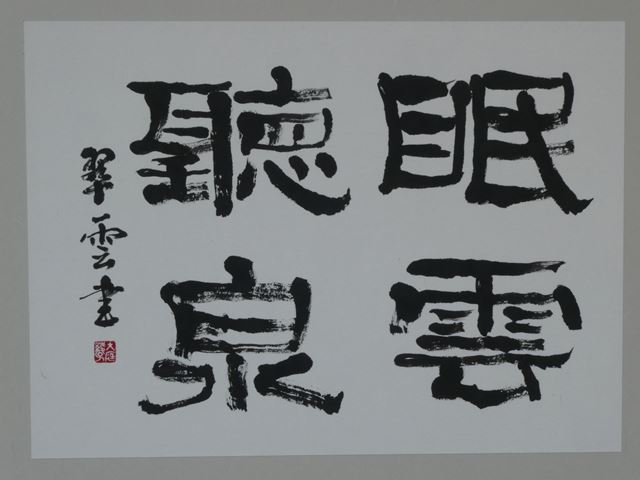 眠雲
聽泉
翠雲書